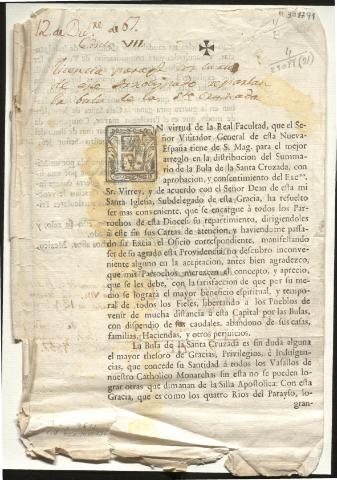 12 de Dic.re de 67.
VIII.
la bula de la Sta Cruzada
N virtud de la Real Facultad, que el Se-
ñor Visitador General de esta Nueva-
España tiene de S. Mag. para el mejor
arreglo en la distribucion del Summa-
rio de la Bula de la Santa Cruzada, con
aprobacion, y consentimiento del Exc.mo
Sr. Virrey, y de acuerdo con el Señor Dean de esta mi
Santa Iglesia, Subdelegado de esta Gracia, ha resuelto
ser mas conveniente, que se encargue à todos los Par-
rochos de esta Diocesi su repartimiento, dirigiendoles
à este fin sus Cartas de atencion, y haviendome passa-
do su Excia el Oficio correspondiente, manifestando
ser de su agrado esta Providencia; no descubro inconve-
niente alguno en la aceptacion, antes bien agradezco,
que mis Parrochos merezcan el concepto, y aprecio,
que se les debe, con la satisfaccion de que por su me-
dio se logrará el mayor beneficio espiritual, y tempo-
ral de todos los Fieles, libertando à los Pueblos de
venir de mucha distancia à esta Capital por las Bulas,
con dispendio de sus caudales, abandono de sus casas,
familias, Haciendas, y otros perjuicios.
La Bula de la Santa Cruzada es sin duda alguna
el mayor thesoro de Gracias, Privilegios, è Indulgen-
cias, que concede su Santidad à todos los Vasallos de
nuestro Catholico Monarcha: sin esta no se pueden lo-
grar otras que dimanan de la Silla Apostolica: Con esta
Gracia, que es como los quatro Rios del Parayso, lo-
gran-